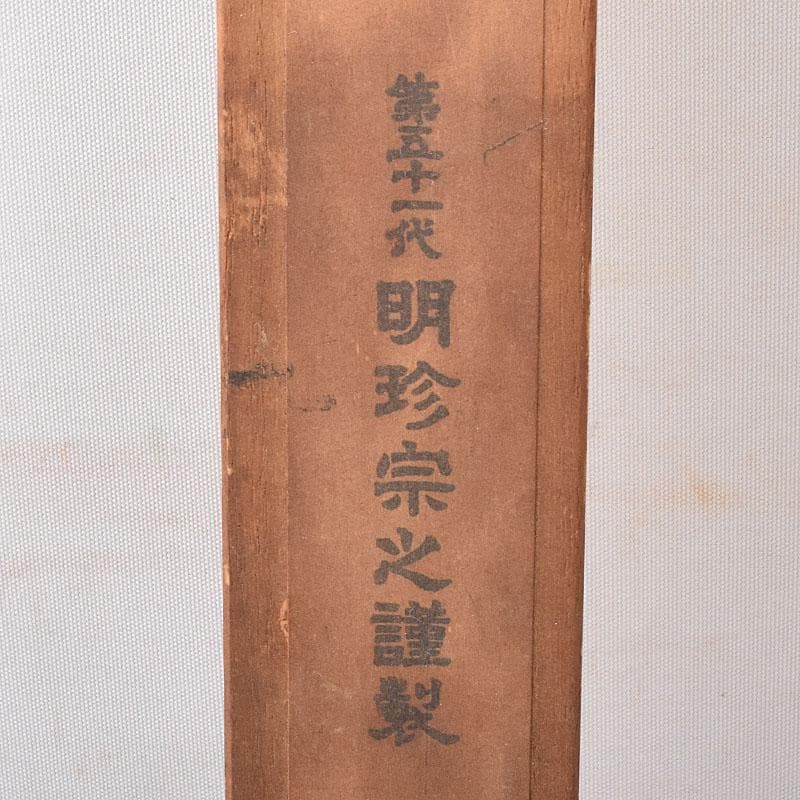 第五十一代 明珍宗之謹製